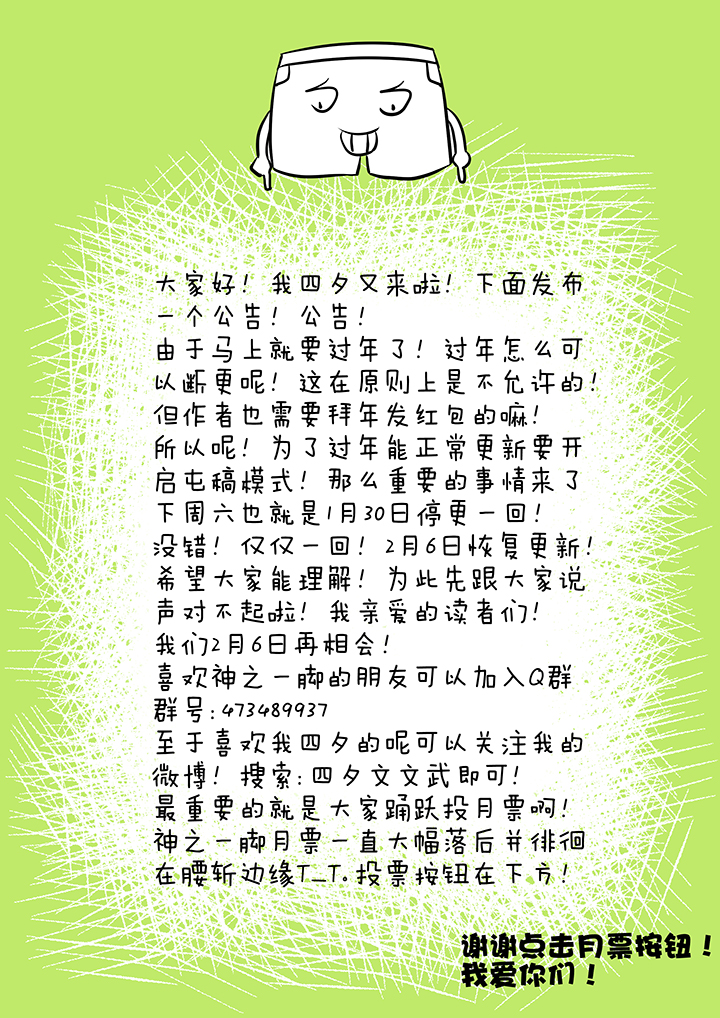 大家好！我四夕又来啦！下面发布
一个公告！公告！
由于马上就要过年了！过年怎么可
以断更呢！这在原则上是不允许的！
但作者也需要拜年发红包的嘛！
所以呢！为了过年能正常更新要开
启屯稿模式！那么重要的事情来了
下周六也就是1月30日停更一回！
没错！仅仅一回！2月6日恢复更新！
希望大家能理解！为此先跟大家说
声对不起啦！我亲爱的读者们！
我们2月6日再相会！
喜欢神之一脚的朋友可以加入Q群
群号:473489937
至于喜欢我四夕的呢可以关注我的
微博！搜索:四夕文文武即可！
最重要的就是大家踊跃投月票啊！
神之一脚月票一直大幅落后并徘徊
在腰斩边缘T_T.投票按钮在下方！
谢谢点击月票按钮！
我爱你们！